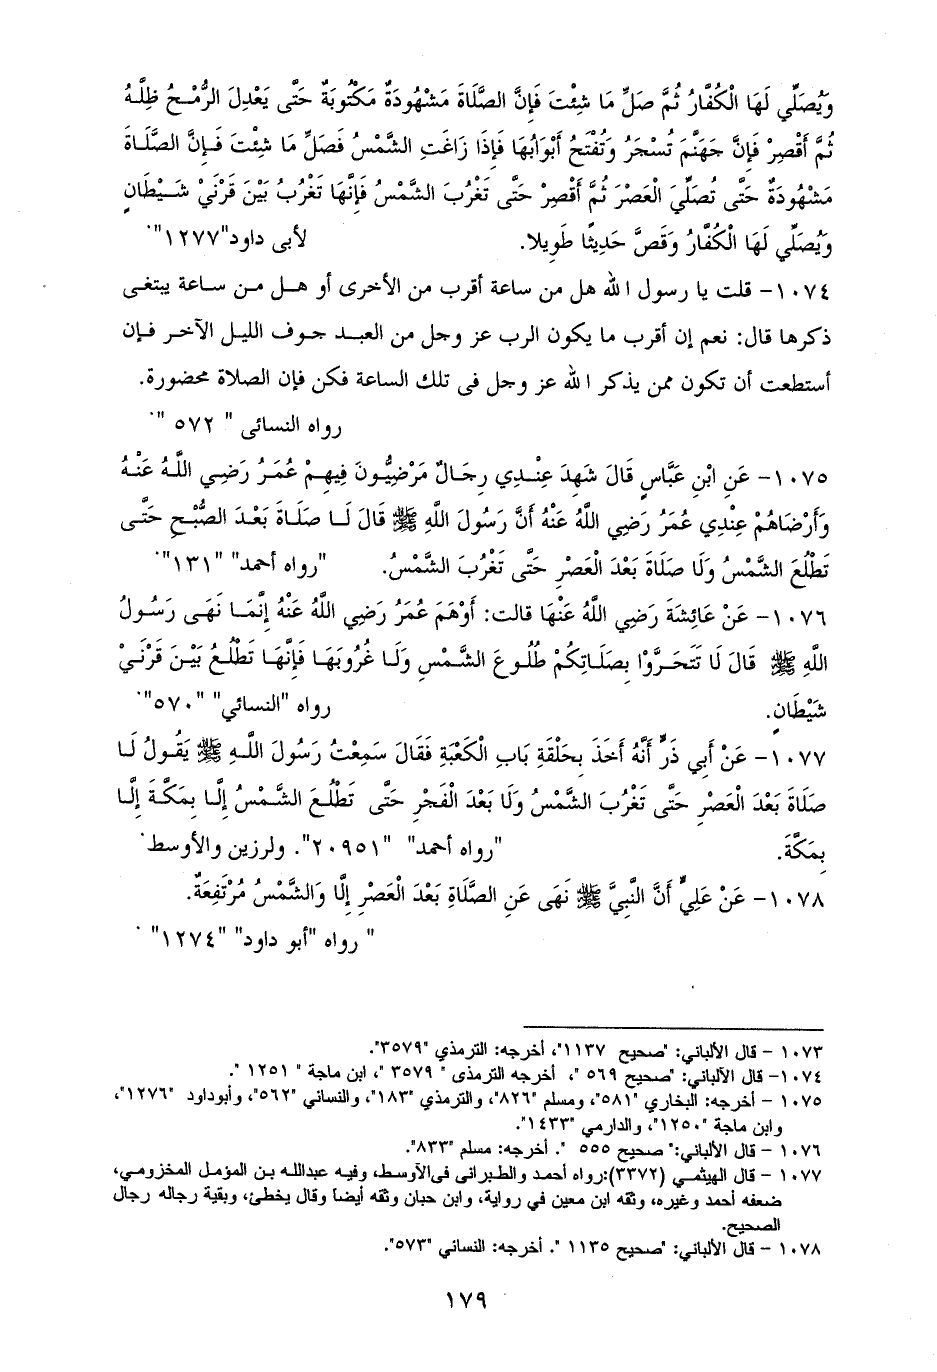 وَيُصَلِّي لَهَا الْكُفَّارُ ثُمَّ صَلِّ مَا شِئْتَ فَإِنَّ الصَّلَاةَ مَشْهُودَةٌ مَكْتُوبَةٌ حَتَّى يَعْدِلَ الرُّمْحُ ظِلَّهُ
ثُمَّ أَقْصِرْ فَإِنَّ جَهَنَّمَ تُسْجَرُ وَتُفْتَحُ أَبْوَابُهَا فَإِذَا زَاغَتِ الشَّمْسُ فَصَلِّ مَا شِئْتَ فَإِنَّ الصَّلَاةَ
مَشْهُودَةٌ حَتَّى تُصَلِّيَ الْعَصْرَ ثُمَّ أَقْصِرْ حَتَّى تَغْرُبَ الشَّمْسُ فَإِنَّهَا تَغْرُبُ بَيْنَ قَرْنَيْ شَيْطَانٍ
وَيُصَلِّي لَهَا الْكُفَّارُ وَقَصَّ حَدِيثًا طَوِيلا. لأبى داود"١٢٧٧".
١٠٧٤– قلت يا رسول الله هل من ساعة أقرب من الأخرى أو هل من ساعة يبتغى
ذكرها قال: نعم إن أقرب ما يكون الرب عز وجل من العبد جوف الليل الآخر فإن
أستطعت أن تكون ممن يذكر الله عز وجل فى تلك الساعة فكن فإن الصلاة محضورة.
رواه النسائى " ٥٧٢ ".
١٠٧٥– عَنِ ابْنِ عَبَّاسٍ قَالَ شَهِدَ عِنْدِي رِجَالٌ مَرْضِيُّونَ فِيهِمْ عُمَرُ رَضِي اللَّهُ عَنْهُ
وَأَرْضَاهُمْ عِنْدِي عُمَرُ رَضِي اللَّهُ عَنْهُ أَنَّ رَسُولَ اللَّهِ ﷺ قَالَ لَا صَلَاةَ بَعْدَ الصُّبْحِ حَتَّى
تَطْلُعَ الشَّمْسُ وَلَا صَلَاةَ بَعْدَ الْعَصْرِ حَتَّى تَغْرُبَ الشَّمْسُ. "رواه أحمد" "١٣١".
١٠٧٦– عَنْ عَائِشَةَ رَضِي اللَّهُ عَنْهَا قالت: أَوْهَمَ عُمَرُ رَضِي اللَّهُ عَنْهُ إِنَّمَا نَهَى رَسُولُ
اللَّهِ ﷺ قَالَ لَا تَتَحَرَّوْا بِصَلَاتِكُمْ طُلُوعَ الشَّمْسِ وَلَا غُرُوبَهَا فَإِنَّهَا تَطْلُعُ بَيْنَ قَرْنَيْ
شَيْطَانٍ. رواه "النسائي" "٥٧٠".
١٠٧٧– عَنْ أَبِي ذَرٍّ أَنَّهُ أَخَذَ بِحَلْقَةِ بَابِ الْكَعْبَةِ فَقَالَ سَمِعْتُ رَسُولَ اللَّهِ ﷺ يَقُولُ لَا
صَلَاةَ بَعْدَ الْعَصْرِ حَتَّى تَغْرُبَ الشَّمْسُ وَلَا بَعْدَ الْفَجْرِ حَتَّى تَطْلُعَ الشَّمْسُ إِلَّا بِمَكَّةَ إِلَّا
بِمَكَّةَ. "رواه أحمد" "٢٠٩٥١". ولرزين والأوسط.
١٠٧٨– عَنْ عَلِيٍّ أَنَّ النَّبِيَّ ﷺ نَهَى عَنِ الصَّلَاةِ بَعْدَ الْعَصْرِ إِلَّا وَالشَّمْسُ مُرْتَفِعَةٌ.
" رواه "أبو داود" "١٢٧٤" .
١٠٧٣ – قال الألباني: "صحيح ١١٣٧"، أخرجه: الترمذي "٣٥٧٩".
١٠٧٤– قال الألباني: "صحيح ٥٦٩ "، أخرجه الترمذى " ٣٥٧٩ "، ابن ماجة " ١٢٥١ ".
١٠٧٥ – أخرجه: البخاري "٥٨١"، ومسلم "٨٢٦"، والترمذي "١٨٣"، والنساني "٥٦٢"، وأبوداود "١٢٧٦"،
وابن ماجة "١٢٥٠"، والدارمي "١٤٣٣".
١٠٧٦ – قال الألباني:" صحيح ٥٥٥ ". أخرجه: مسلم "٨٣٣".
١٠٧٧ – قال الهيثمي (٣٣٧٢):رواه أحمد والطبرانى فى الأوسط، وفيه عبدالله بن المؤمل المخزومي،
ضعفه أحمد وغيره، وثقه ابن معين في رواية، وابن حبان وثقه أيضا وقال يخطئ، وبقية رجاله رجال
الصحيح.
١٠٧٨ – قال الألباني: "صحيح ١١٣٥ ". أخرجه: النساني "٥٧٣".
١٧٩